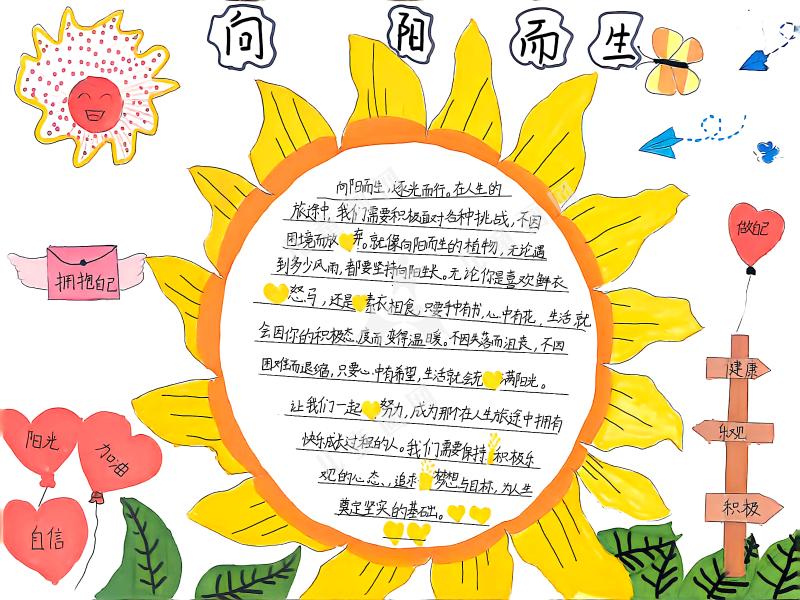 向阳而生
向阳而生，逐光而行。在人生的
旅途中，我们需要积极面对各种挑战，不因
困境而放弃。就像向阳而生的植物，无论遇
到多少风雨，都要坚持向阳生长。无论你是喜欢鲜衣
怒马，还是素衣相食，只要手中有书，心中有花，生活就
会因你的积极态度而变得温暖。不因失落而沮丧，不因
困难而退缩，只要心中有希望，生活就会充满阳光。
让我们一起努力，成为那个在人生旅途中拥有
快乐成长过程的人。我们需要保持积极乐
观的心态、追求梦想与目标，为人生
奠定坚实的基础。
拥抱自己
阳光
加油
自信
做自己
健康
乐观
积极